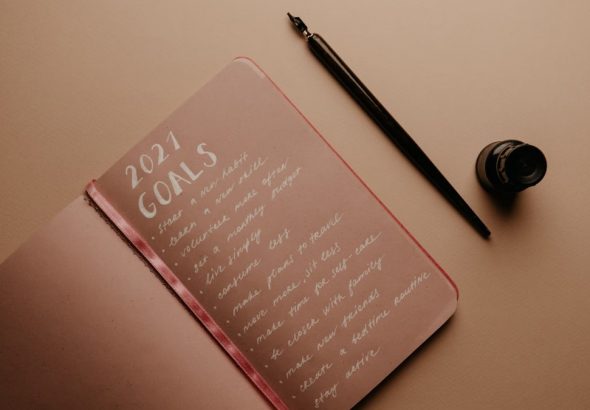 2021
GOALS
• start a new habit
• learn a new skill
• volunteer more often
• set a monthly budget
• live simply
• consume less
• make plans to travel
• move more, sit less
• make time for self-care
• be closer with family
• make new friends
• create a bedtime routine
• stay active